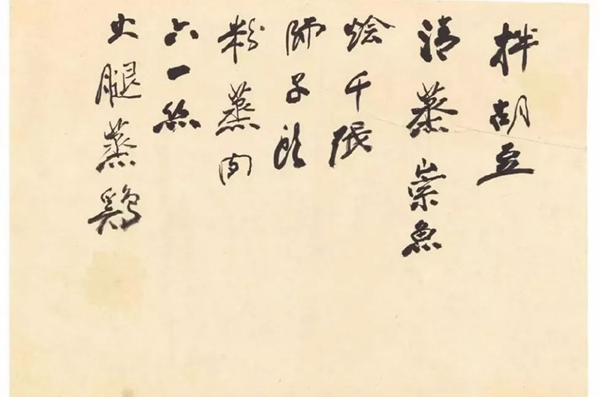 拌胡豆
清蒸崇魚
燴千張
師子頭
粉蒸肉
六一絲
火腿蒸鷄